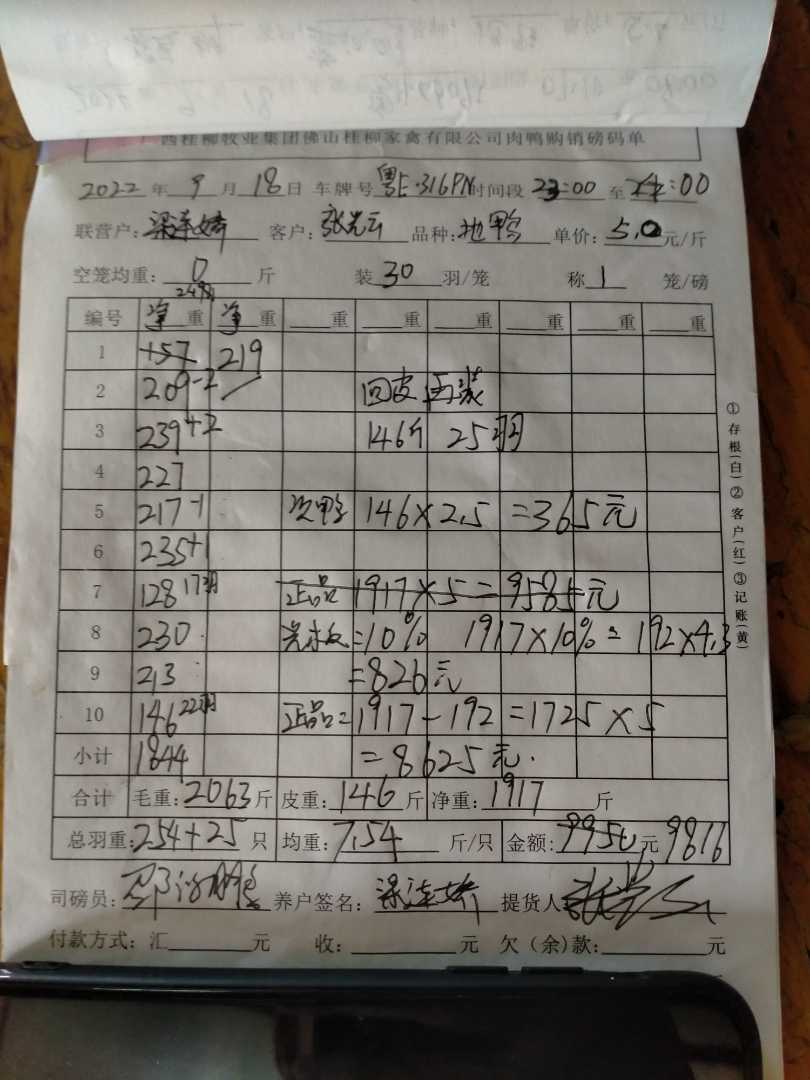 西桂柳牧业集团佛山桂柳家禽有限公司肉鸭购销磅码单
2022 年 9 月 18 日 车牌号 粤E·316PN 时间段 23:00 至 24:00
联营户: 梁连娇 客户: 张光云 品种: 地鸭 单价: 5.0 元/斤
空笼均重: 0 斤 装 30 羽/笼 称 1 笼/磅
编号 净 重 净 重 重 重 重 重 重 重
1 +57 219
2 209-2 回皮 再装
3 239+2 146斤 25羽
4 227
5 217-1 次鸭 146×2.5 =365元
6 235+1
7 128 17羽 正品 1917×5=9585元
8 230 =10% 1917×10%=192×4.3
9 213 =826元
10 146 22羽 正品=1917-192=1725×5
小计 1844 =8625元.
合计 毛重: 2063 斤 皮重: 146 斤 净重: 1917 斤
总羽重: 254+25 只 均重: 7.54 斤/只 金额: 9950 元 9816
司磅员: 养户签名: 梁连娇 提货人
付款方式: 汇 元 收: 元 欠(余)款: 元
①存根(白)②客户(红)③记账(黄)